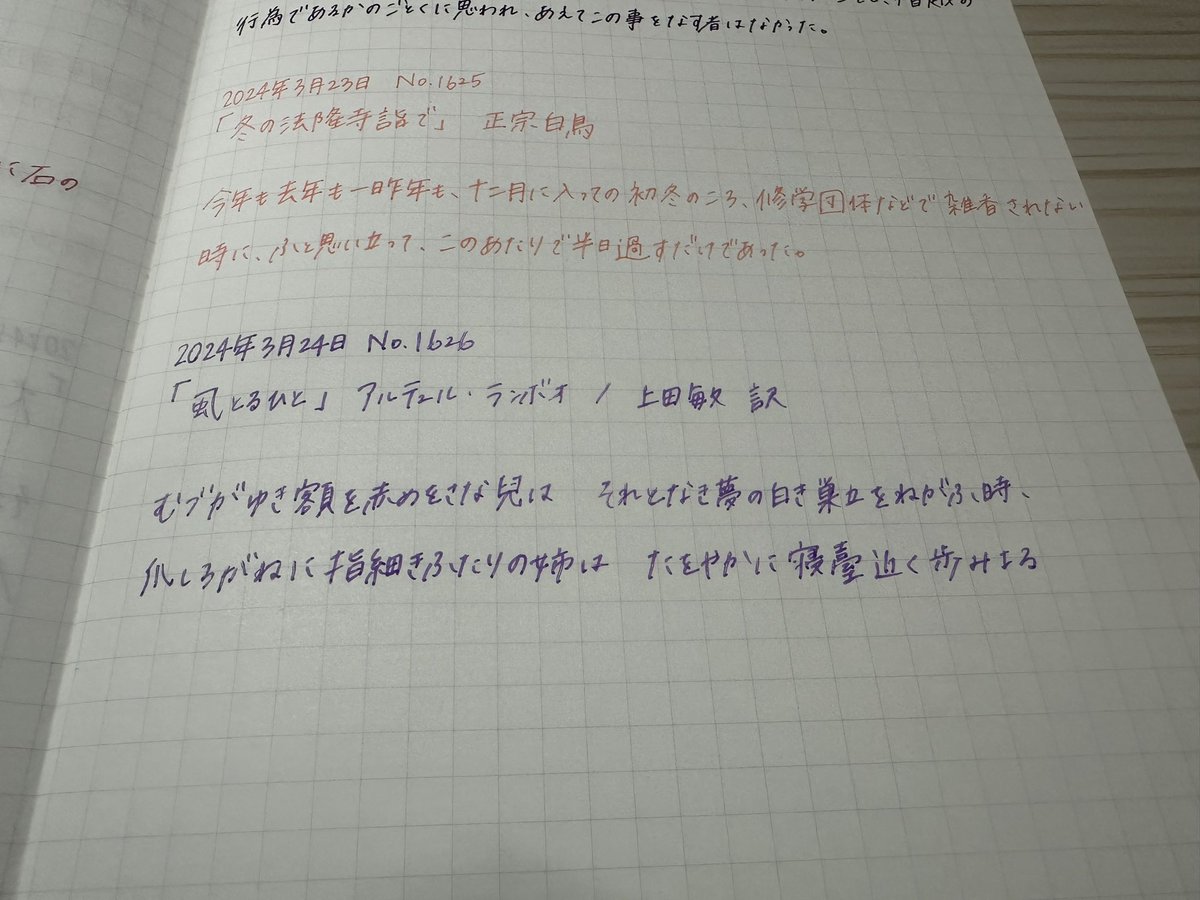 行為であるかのごとくに思われ、あえてこの事をなす者はなかった。
石の
2024年3月23日 No.1625
「冬の法隆寺詣で」 正宗白鳥
今年も去年も一昨年も、十二月に入っての初冬のころ、修学団体などで雑沓されない
時に、ふと思い立って、このあたりで半日過すだけであった。
2024年3月24日 No.1626
「虱とるひと」 アルテュル・ランボオ / 上田敏 訳
むづがゆき額を赤めをさな兒は それとなき夢の白き巣立をねがふ時、
爪しろがねに指細きふたりの姉は たをやかに寝臺近く歩みよる